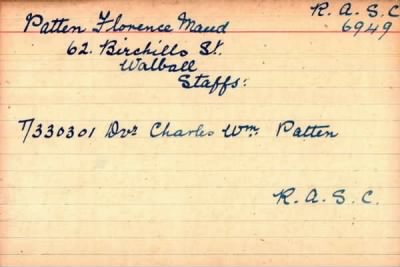 Patten Florence Maud R. A. S. C
6949
62. Birchills St.
Walsall
Staffs:
T/330301 Dvr Charles Wm. Patten
R. A. S. C.